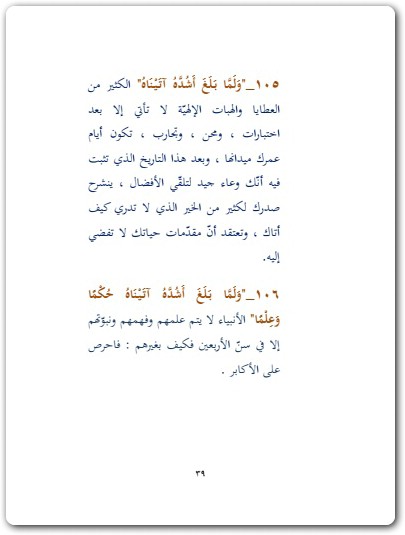 ١٠٥_"وَلَمَّا بَلَغَ أَشُدَّهُ آتَيْنَاهُ" الكثير من
العطايا والهبات الإلهيّة لا تأتي إلا بعد
اختبارات ، ومحن ، وتجارب ، تكون أيام
عمرك ميدانها ، وبعد هذا التاريخ الذي تثبت
فيه أنّك وعاء جيد لتلقّي الأفضال ، ينشرح
صدرك لكثير من الخير الذي لا تدري كيف
أتاك ، وتعتقد أنّ مقدّمات حياتك لا تفضي
إليه.
١٠٦_"وَلَمَّا بَلَغَ أَشُدَّهُ آتَيْنَاهُ حُكْمًا
وَعِلْمًا" الأنبياء لا يتم علمهم وفهمهم ونبوّتهم
إلا في سنّ الأربعين فكيف بغيرهم : فاحرص
على الأكابر .
٣٩